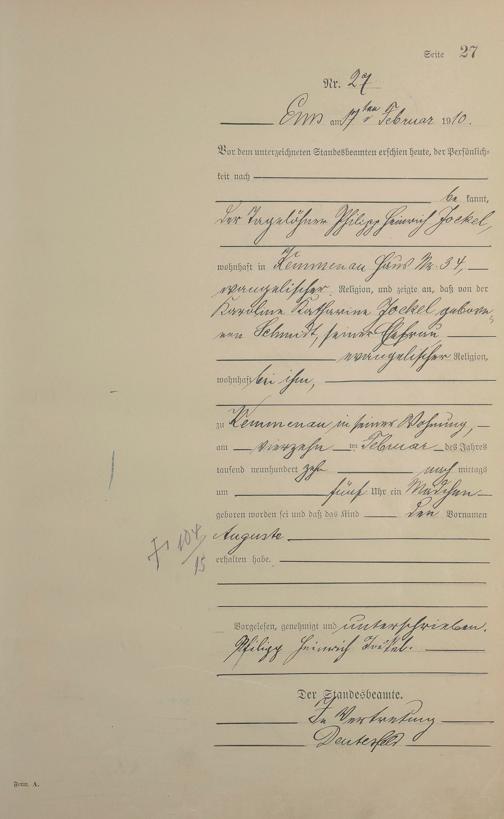 Seite 27
Nr. 27
Ems am 17ten Februar 1910.
Vor dem unterzeichneten Standesbeamten erschien heute, der Persönlich-
keit nach
be kannt,
der Tagelöhner Philipp Heinrich Jockel,
wohnhaft in Kemmenau Haus Nr. 34,
evangelischer Religion, und zeigte an, daß von der
Karoline Katharine Jockel gebore-
nen Schmidt, seiner Ehefrau
evangelischer Religion,
wohnhaft bei ihm,
zu Kemmenau in seiner Wohnung,
am vierzehn ten Februar des Jahres
tausend neunhundert zehn nach mittags
um fünf Uhr ein Mädchen
geboren worden sei und daß das Kind den Vornamen
Auguste
104/15
erhalten habe.
Vorgelesen, genehmigt und unterschrieben.
Philipp Heinrich Jockel.
Der Standesbeamte.
In Vertretung
Form. A.